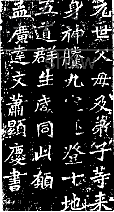 元世父母及弟子等來
身神騰九空迹登十地
五道群生咸同此願
孟廣達文蕭顯慶書